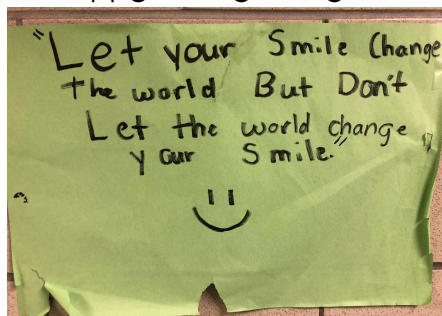 "Let your Smile Change
the world But Don't
Let the world change
your Smile."